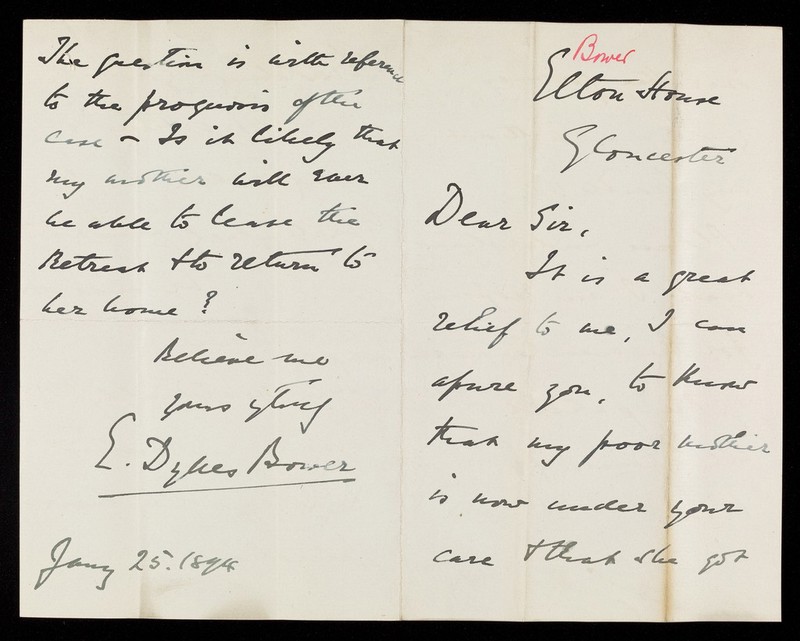 The question is with reference
to the prognosis of the
case – Is it likely that
my mother will ever
be able to leave the
Retreat & to return to
her home?
Believe me
yours
E. Dykes Bower
Jany 25. 1894
Bower
Elton House
Gloucester
Dear Sir,
It is a great
relief to me, I can
assure you, to know
that my poor mother
is now under your
care & that she got